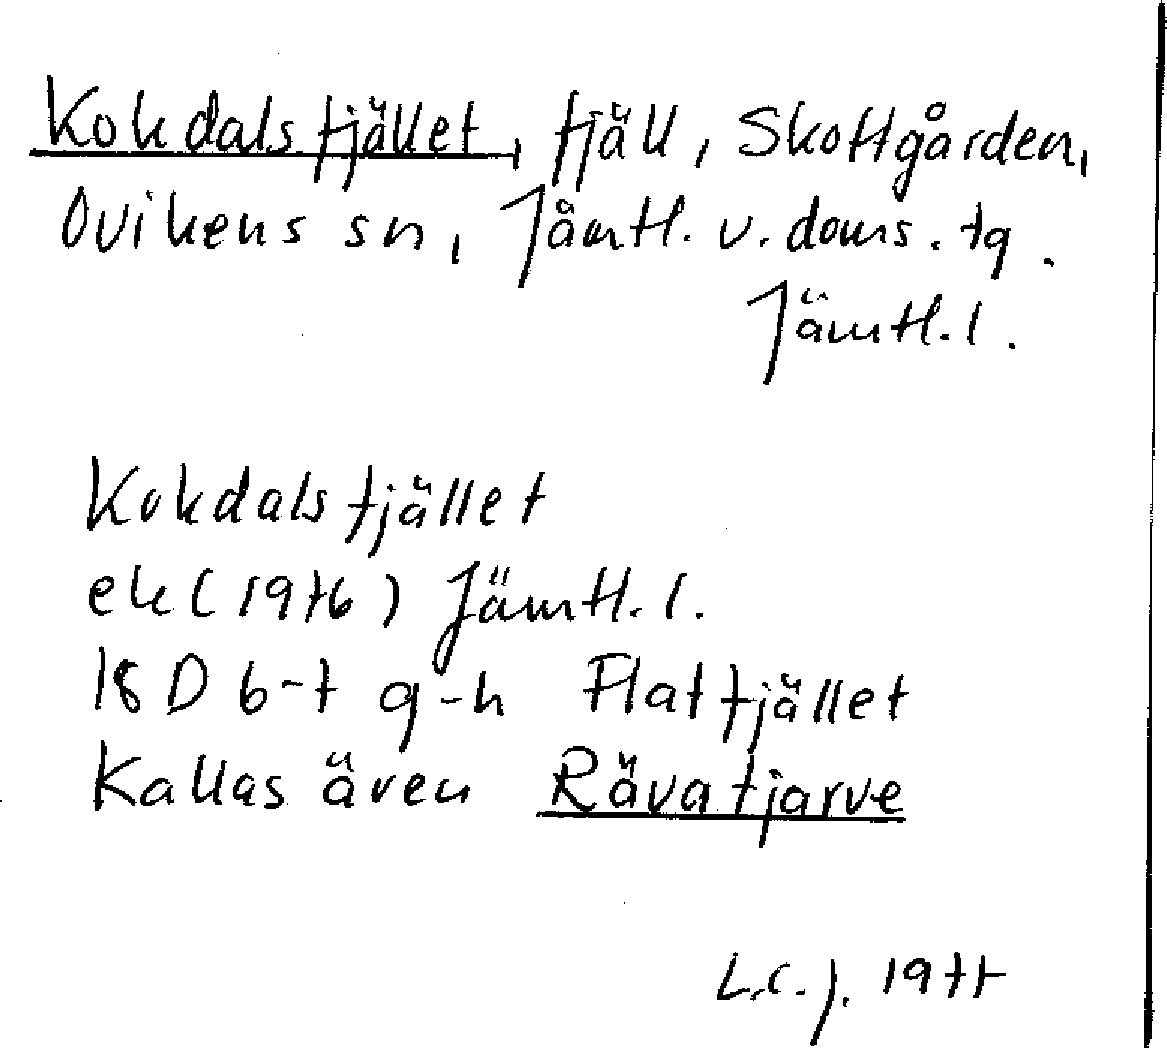 Kokdalsfjället, fjäll, Skottgården,
Ovikens sn, Jämtl. v. doms. tg.
Jämtl. l.
Kokdalsfjället
ek (1976) Jämtl. l.
18 D 6-7 g-h Flatfjället
Kallas även Rävatjarve
L.C.J. 1977